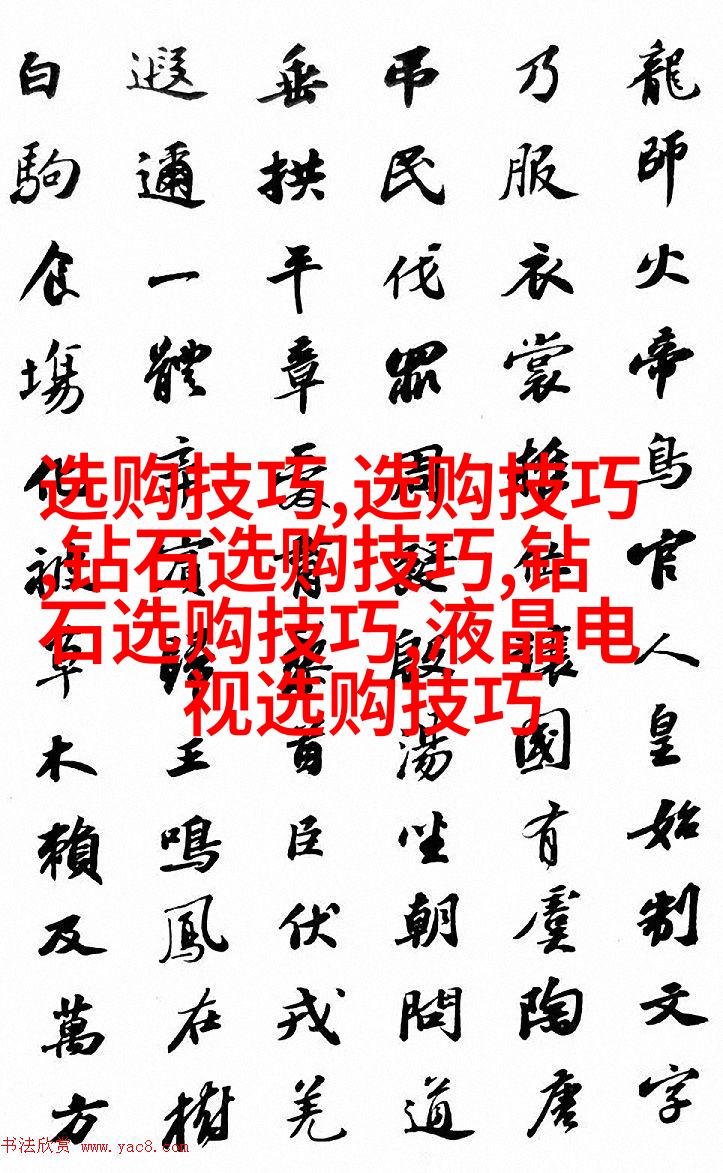 龍師火帝鳥官人皇始制文字
乃服衣裳推位讓國有虞陶唐
吊民伐罪周發殷湯坐朝問道
垂拱平章愛育黎首臣伏戎羌
遐邇一體率賓歸王鳴鳳在樹
白駒食場化被草木賴及萬方
选购技巧,选购技巧
,钻石选购技巧,钻
石选购技巧,液晶电
视选购技巧
书法欣赏 www.yac8.com